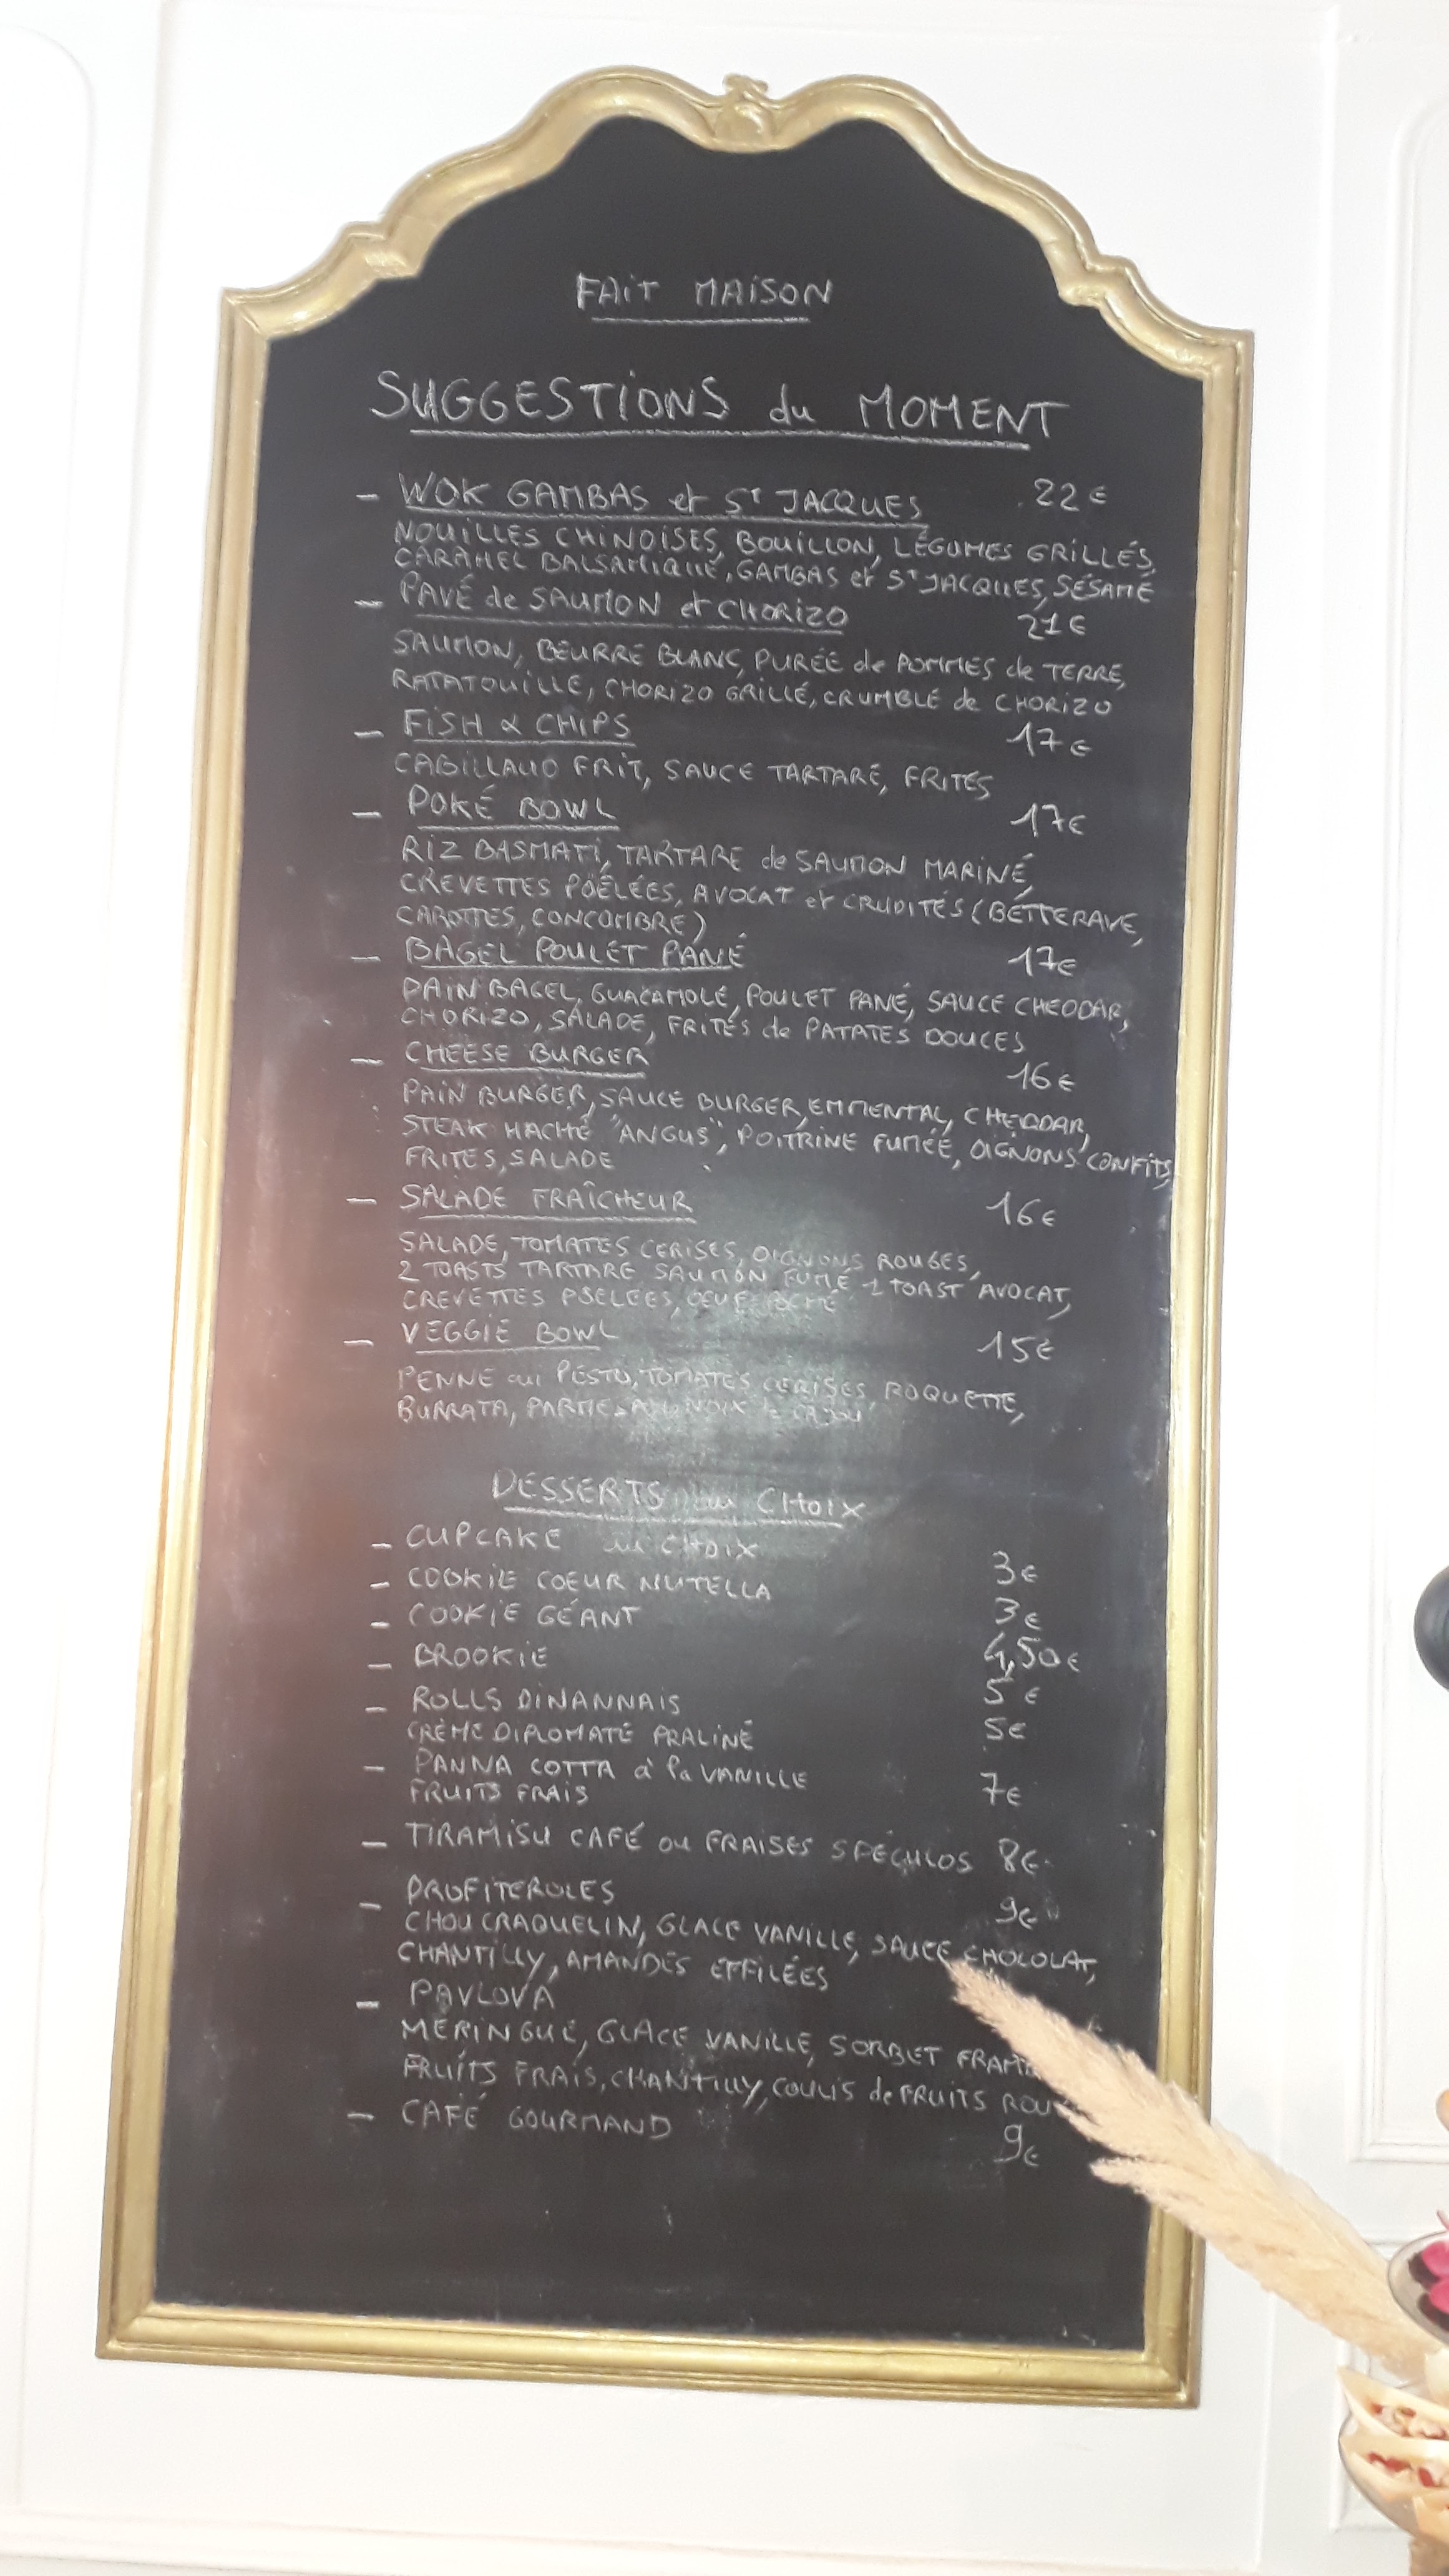 FAIT MAISON
SUGGESTIONS du MOMENT
- WOK GAMBAS et ST JACQUES 22€
NOUILLES CHINOISES, BOUILLON, LÉGUMES GRILLÉS,
CARAMEL BALSAMIQUE, GAMBAS et ST JACQUES, SÉSAME
- PAVÉ de SAUMON et CHORIZO 21€
SAUMON, BEURRE BLANC, PURÉE de POMMES de TERRE,
RATATOUILLE, CHORIZO GRILLÉ, CRUMBLE de CHORIZO
- FISH & CHIPS 17€
CABILLAUD FRIT, SAUCE TARTARE, FRITES
- POKÉ BOWL 17€
RIZ BASMATI, TARTARE de SAUMON MARINÉ,
CREVETTES POÊLÉES, AVOCAT et CRUDITÉS (BETTERAVE,
CAROTTES, CONCOMBRE)
- BAGEL POULET PANÉ 17€
PAIN BAGEL, GUACAMOLE, POULET PANÉ, SAUCE CHEDDAR,
CHORIZO, SALADE, FRITES de PATATES DOUCES
- CHEESE BURGER 16€
PAIN BURGER, SAUCE BURGER, EMMENTAL, CHEDDAR,
STEAK HACHÉ "ANGUS", POITRINE FUMÉE, OIGNONS CONFITS,
FRITES, SALADE
- SALADE FRAÎCHEUR 16€
SALADE, TOMATES CERISES, OIGNONS ROUGES,
2 TOASTS TARTARE SAUMON FUMÉ 1 TOAST AVOCAT,
CREVETTES POELEES, OEUF POCHÉ
- VEGGIE BOWL 15€
PENNE au PESTO, TOMATES CERISES, ROQUETTE,
BURRATA, PARMESAN, NOIX de CAJOU
DESSERTS au CHOIX
- CUPCAKE au CHOIX 3€
- COOKIE COEUR NUTELLA 3€
- COOKIE GÉANT 4,50€
- BROOKIE 5€
- ROLLS DINANNAIS 5€
CRÈME DIPLOMATE PRALINÉ
- PANNA COTTA à la VANILLE 7€
FRUITS FRAIS
- TIRAMISU CAFÉ ou FRAISES SPÉCULOS 8€
- PROFITEROLES 9€
CHOU CRAQUELIN, GLACE VANILLE, SAUCE CHOCOLAT,
CHANTILLY, AMANDES EFFILÉES
- PAVLOVA
MERINGUE, GLACE VANILLE, SORBET
FRUITS FRAIS, CHANTILLY, COULIS de FRUITS
- CAFÉ GOURMAND 9€